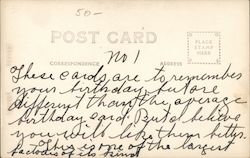 50-
POST CARD
PLACE
STAMP
HERE
CORRESPONDENCE
ADDRESS
No 1
These cards are to remember
your birthday, but are
different than the average
birthday card. But I believe
you will like them better.
This is one of the largest
factories of its kind